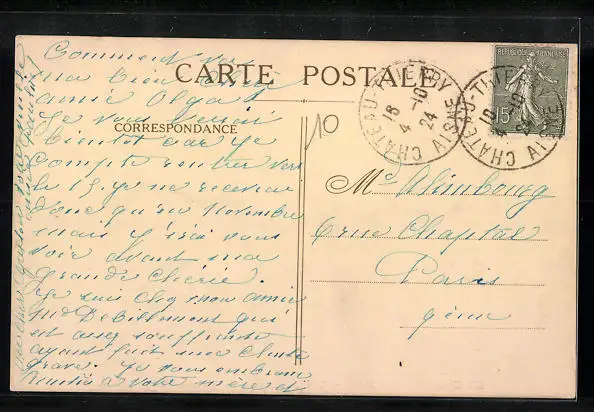 CARTE POSTALE
CORRESPONDANCE
Comment va
ma bien chère
amie Olga?
Je vous verrai
bientôt car je
compte rentrer vers
le 15. Je ne recevrai
donc qu'en Novembre
mais j'irai vous
voir avant ma
grande chérie.
Je suis chez mon amie
qui
est assez souffrante
ayant fait une chute
grave. Je vous embrasse
à votre mère et
10
REPUBLIQUE FRANÇAISE
15c
CHATEAU-THIERRY
18 -10
4 24
AISNE
CHATEAU-THIERRY
18 -10
4 24
AISNE
Mlle Alimbourg
6 rue Chaptal
Paris
9ème